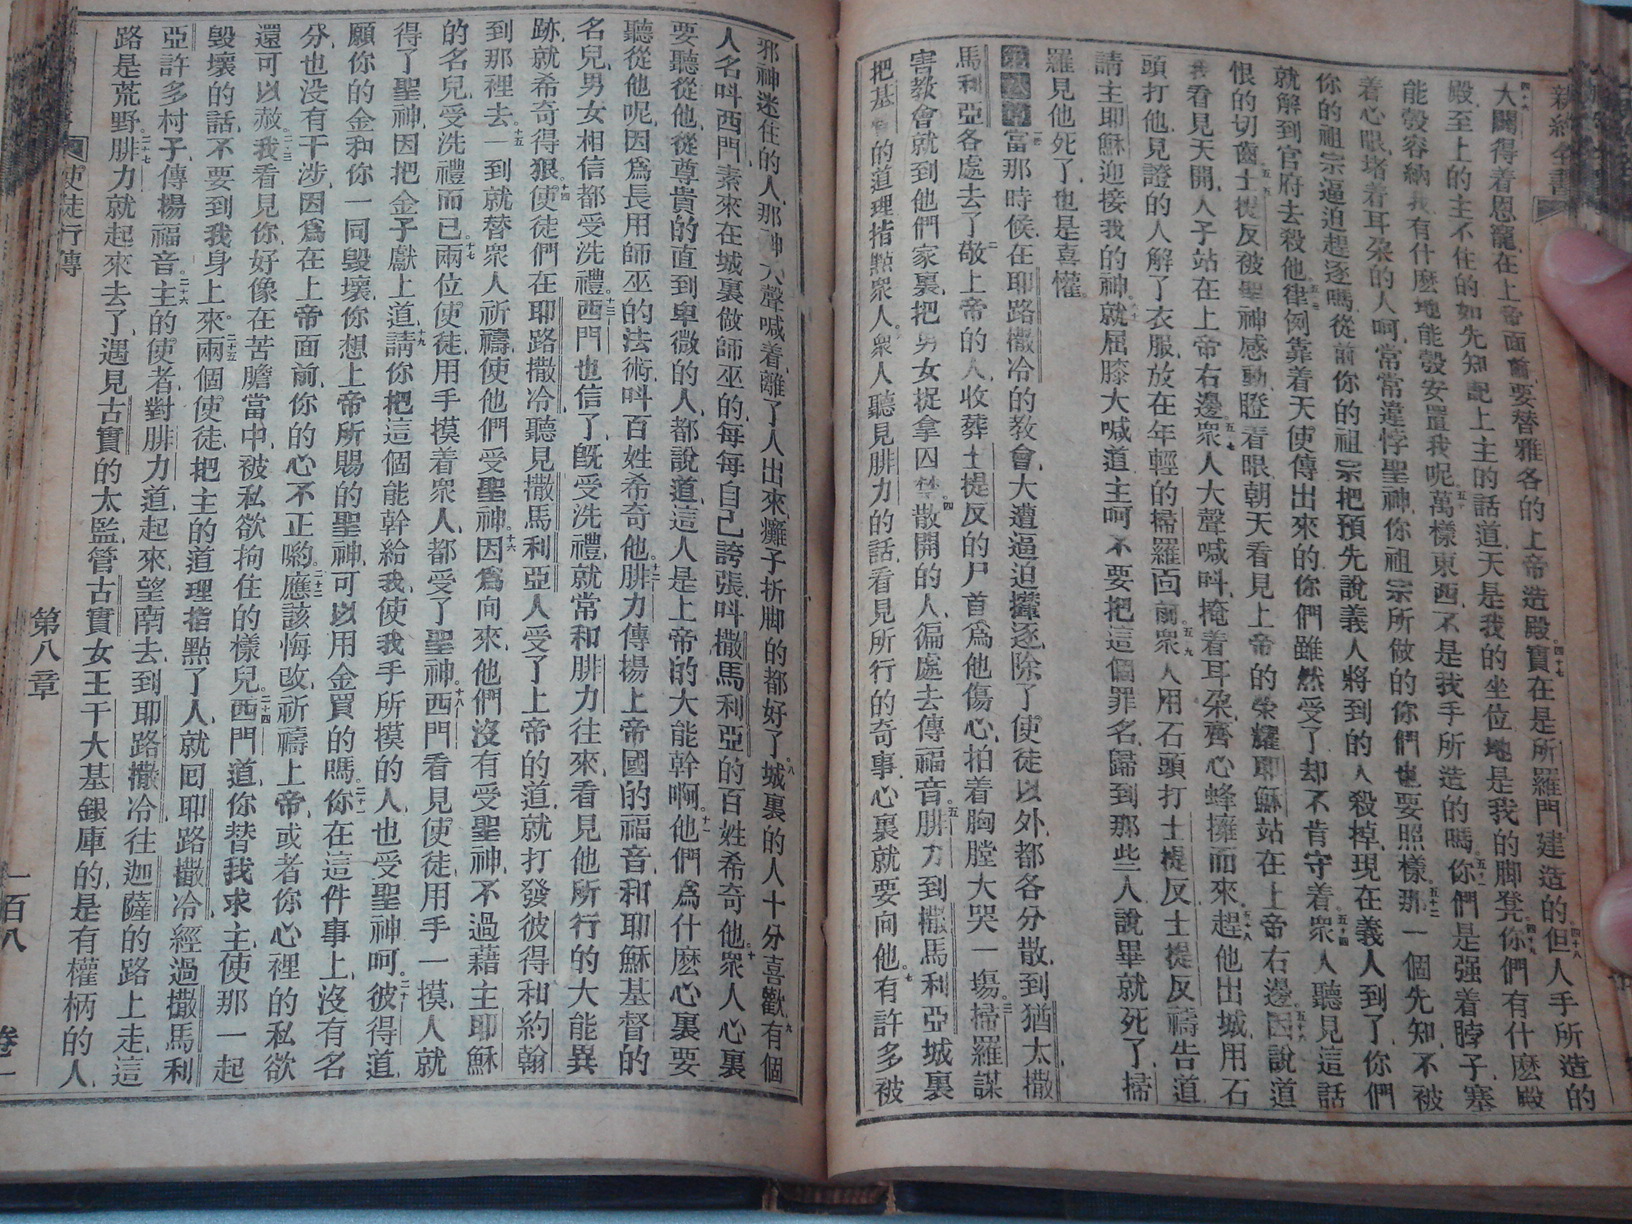 新約全書
大闢得着恩寵在上帝面前要替雅各的上帝造殿四十七實在是所羅門建造的四十八但人手所造的
殿至上的主不住的如先知記上主的話道天是我的坐位地是我的脚凳四十九你們有什麽殿
能彀容納我有什麽地能彀安置我呢五十萬樣東西不是我手所造的嗎五十一你們是强着脖子塞
着心眼堵着耳朶的人呵常常違悖聖神你祖宗所做的你們也要照樣五十二那一個先知不被
你的祖宗逼迫趕逐嗎從前你的祖宗把預先說義人將到的人殺掉現在義人到了你們
就解到官府去殺他五十三律例靠着天使傳出來的你們雖然受了却不肯守着五十四衆人聽見這話
恨的切齒五十五士提反被聖神感動瞪着眼朝天看見上帝的榮耀耶穌站在上帝右邊五十六因說道
我看見天開人子站在上帝右邊五十七衆人大聲喊呌掩着耳朶齊心蜂擁而來五十八趕他出城用石
頭打他見證的人解了衣服放在年輕的掃羅面前五十九衆人用石頭打士提反士提反禱告道
請主耶穌迎接我的神六十就屈膝大喊道主呵不要把這個罪名歸到那些人說畢就死了掃
羅見他死了也是喜懽
第八章一當那時候在耶路撒冷的教會大遭逼迫攆逐除了使徒以外都各分散到猶太撒
馬利亞各處去了二敬上帝的人收葬士提反的尸首爲他傷心拍着胸膛大哭一塲三掃羅謀
害教會就到他們家裏把男女捉拿囚禁四散開的人徧處去傳福音五腓力到撒馬利亞城裏
把基督的道理指點衆人六衆人聽見腓力的話看見所行的奇事心裏就要向他七有許多被
邪神迷住的人那神大聲喊着離了人出來癱子折脚的都好了八城裏的人十分喜歡九有個
人名呌西門素來在城裏做師巫的每每自己誇張呌撒馬利亞的百姓希奇他十衆人心裏
要聽從他從尊貴的直到卑微的人都說道這人是上帝的大能幹啊十一他們爲什麽心裏要
聽從他呢因爲長用師巫的法術呌百姓希奇他十二腓力傳揚上帝國的福音和耶穌基督的
名兒男女相信都受洗禮十三西門也信了旣受洗禮就常和腓力往來看見他所行的大能異
跡就希奇得狠十四使徒們在耶路撒冷聽見撒馬利亞人受了上帝的道就打發彼得和約翰
到那裡去十五一到就替衆人祈禱使他們受聖神十六因爲向來他們沒有受聖神不過藉主耶穌
的名兒受洗禮而已十七兩位使徒用手摸着衆人都受了聖神十八西門看見使徒用手一摸人就
得了聖神因把金子獻上道十九請你把這個能幹給我使我手所摸的人也受聖神呵二十彼得道
願你的金和你一同毀壞你想上帝所賜的聖神可以用金買的嗎二十一你在這件事上沒有名
分也没有干涉因爲在上帝面前你的心不正喲二十二應該悔改祈禱上帝或者你心裡的私欲
還可以赦二十三我看見你好像在苦膽當中被私欲拘住的樣兒二十四西門道你替我求主使那一起
毀壞的話不要到我身上來二十五兩個使徒把主的道理指點了人就回耶路撒冷經過撒馬利
亞許多村子傳揚福音二十六主的使者對腓力道起來望南去到耶路撒冷往迦薩的路上走這
路是荒野二十七腓力就起來去了遇見古實的太監管古實女王干大基銀庫的是有權柄的人
使徒行傳
第八章
一百八
卷一